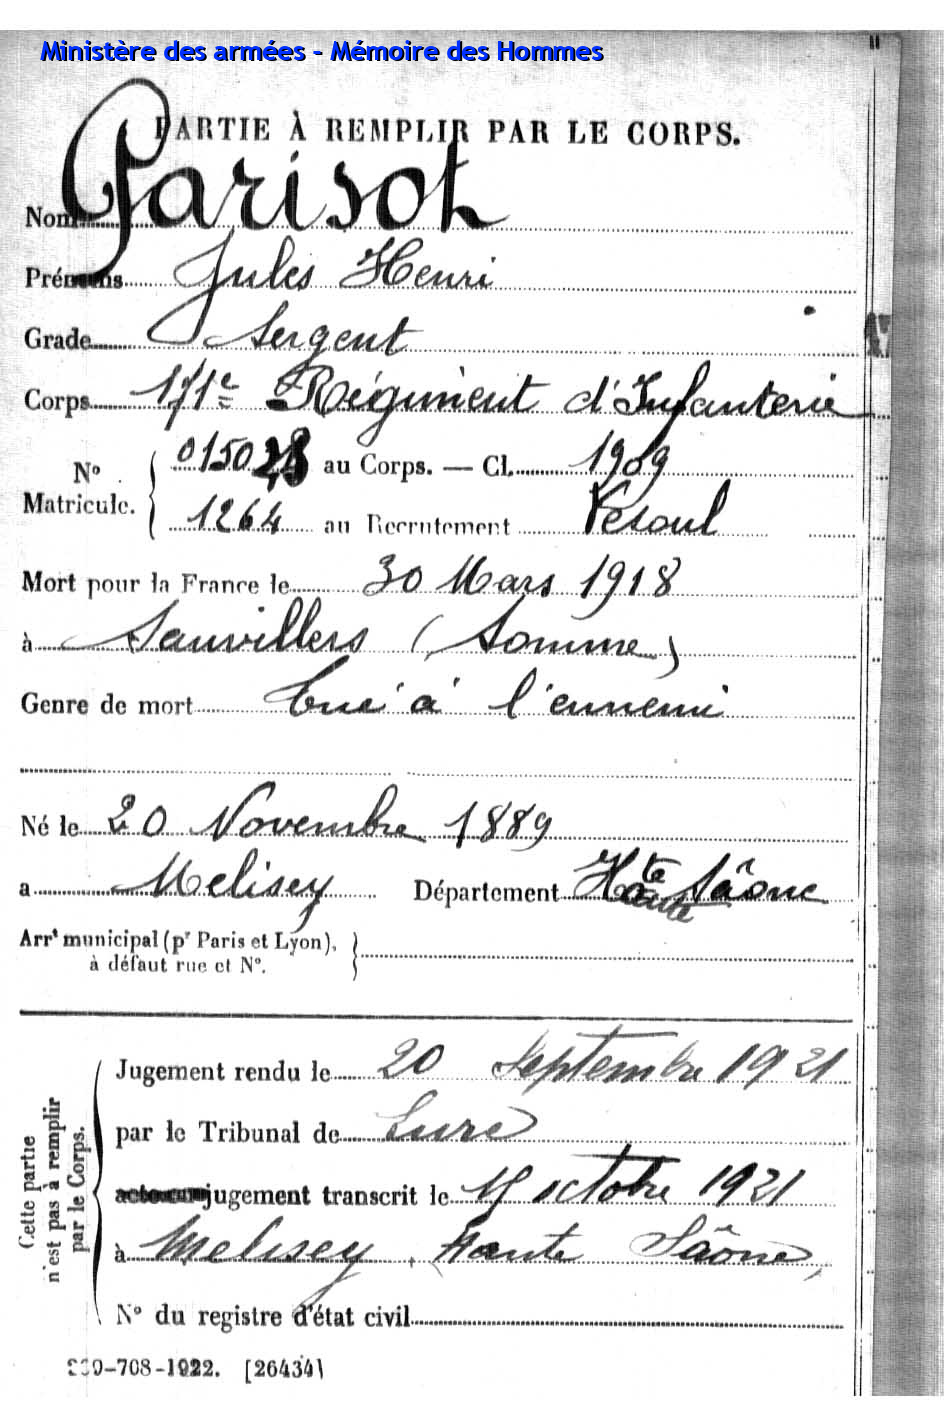 Ministère des armées - Mémoire des Hommes
PARTIE À REMPLIR PAR LE CORPS.
Nom Parisot
Prénoms Jules Henri
Grade Sergent
Corps 171e Régiment d'Infanterie
N° Matricule. 0150 au Corps. — Cl. 1909
1264 au Recrutement Vesoul
Mort pour la France le 30 Mars 1918
à Sauvillers (Somme)
Genre de mort tué à l'ennemi
Né le 20 Novembre 1889
a Melisey Département Hte Saône
Arrt municipal (pr Paris et Lyon),
à défaut rue et N°.
Cette partie
n'est pas à remplir
par le Corps.
Jugement rendu le 20 Septembre 1921
par le Tribunal de Lure
jugement transcrit le octobre 1921
à Melisey, Haute Saône,
N° du registre d'état civil
-708-1922. [26434]